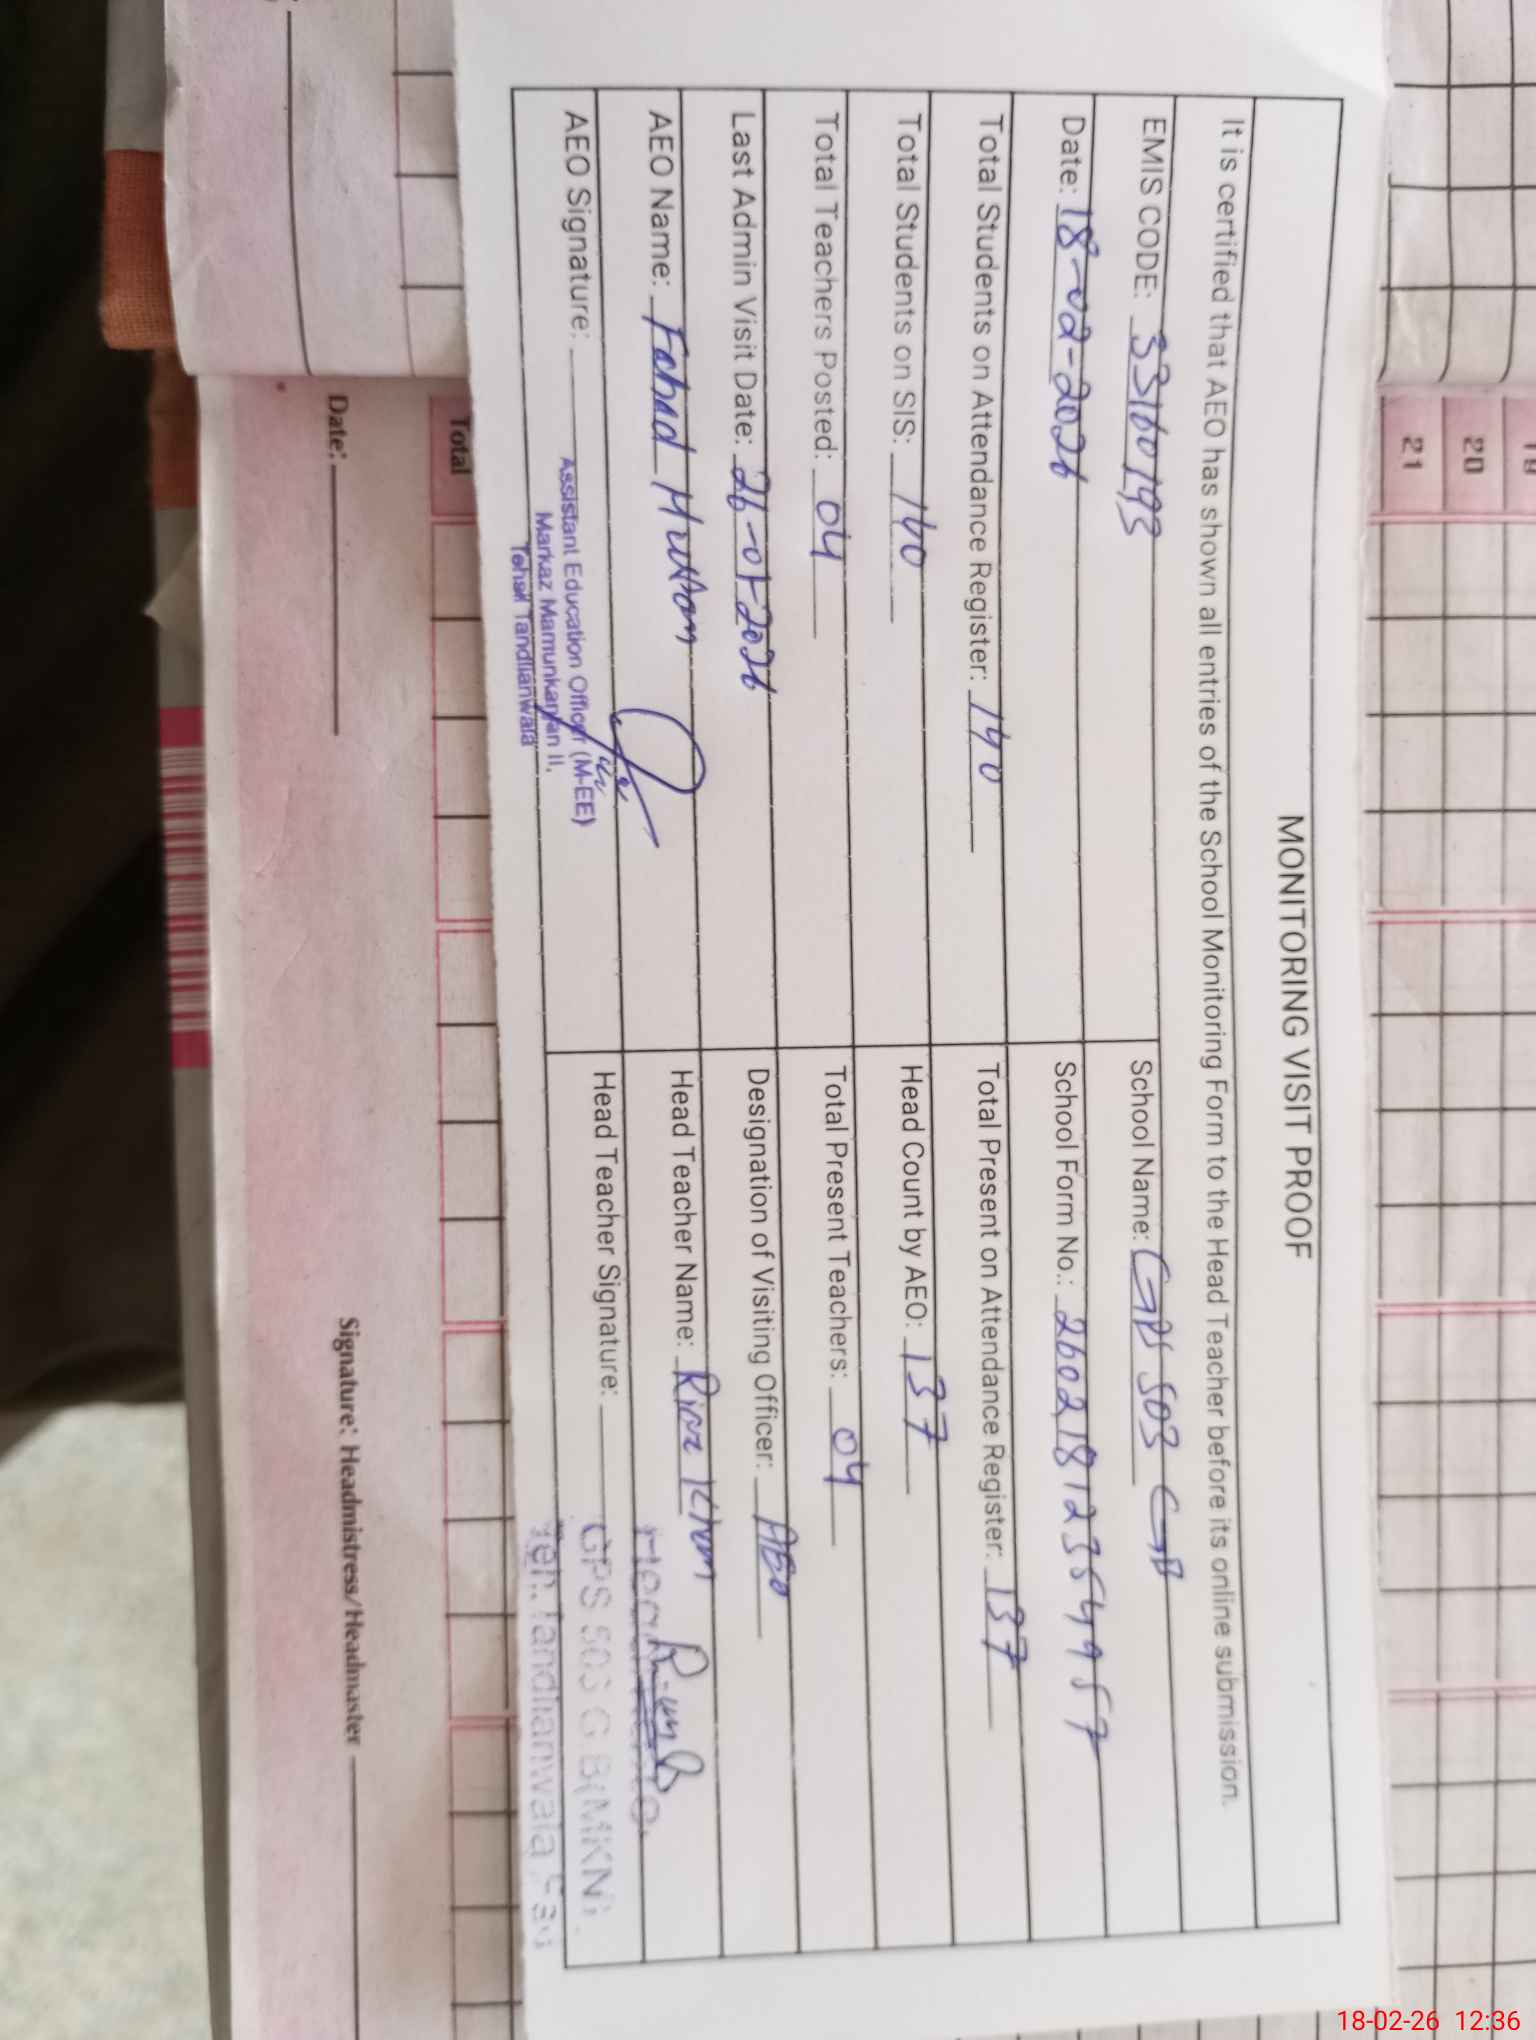 MONITORING VISIT PROOF
It is certified that AEO has shown all entries of the School Monitoring Form to the Head Teacher before its online submission.
EMIS CODE: 33160193
School Name: GPS 503 GB
Date: 18-02-2026
School Form No.: 260218123549957
Total Students on Attendance Register: 140
Total Present on Attendance Register: 137
Total Students on SIS: 140
Head Count by AEO: 137
Total Teachers Posted: 04
Total Present Teachers: 04
Last Admin Visit Date: 26-01-2026
Designation of Visiting Officer: AEO
AEO Name: Fahad Hussan
Head Teacher Name: Riaz Khan
AEO Signature:
Head Teacher Signature:
Assistant Education Officer (M-EE)
Markaz Mamunkanjan II,
Tehsil Tandlianwala
GPS 503 G B(MKN)
Teh. Tandlianwala
Total
19
20
21
Date:
Signature: Headmistress/Headmaster
18-02-26 12:36